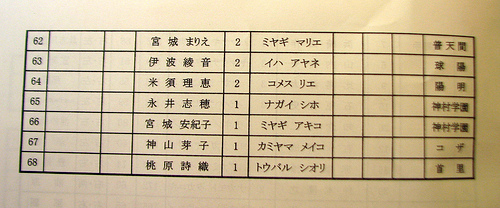 62 宮城 まりえ 2 ミヤギ マリエ 普天間
63 伊波 綾音 2 イハ アヤネ 球陽
64 米須 理恵 2 コメス リエ 陽明
65 永井 志穂 1 ナガイ シホ 神村学園
66 宮城 安紀子 1 ミヤギ アキコ 神村学園
67 神山 芽子 1 カミヤマ メイコ コザ
68 桃原 詩織 1 トウバル シオリ 首里